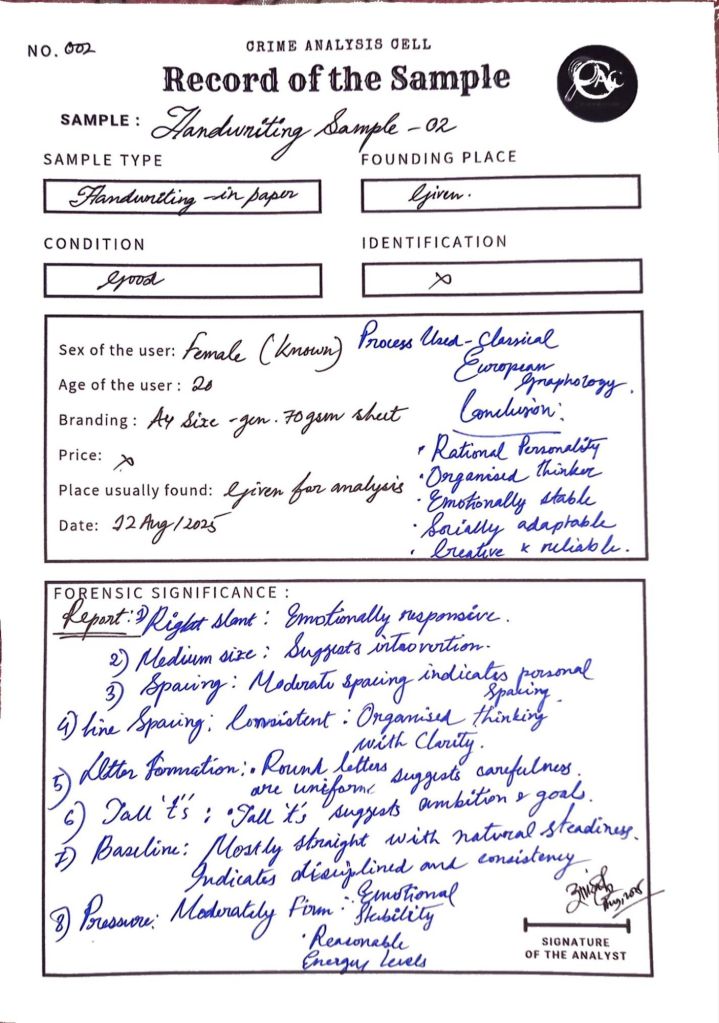 NO. 002
CRIME ANALYSIS CELL
Record of the Sample
CAC
SAMPLE : Handwriting Sample - 02
SAMPLE TYPE
FOUNDING PLACE
Handwriting - in paper
Given.
CONDITION
IDENTIFICATION
Good
x
Sex of the user: Female (Known)
Age of the user : 20
Branding : A4 Size - gen. 70 gsm sheet
Price: x
Place usually found: Given for analysis
Date: 12 Aug/2025
Process Used - Classical
European
Graphology.
Conclusion:
• Rational Personality
• Organised thinker
• Emotionally stable
• Socially adaptable
• Creative & reliable.
FORENSIC SIGNIFICANCE :
Report: 1) Right slant : Emotionally responsive.
2) Medium size : Suggests introvertion.
3) Spacing : Moderate spacing indicates personal
spacing.
4) Line Spacing : Consistent : Organised thinking
with Clarity.
5) Letter Formation: • Round letters
are uniform suggests carefulness.
6) Tall 't's : • Tall 't's suggests ambition & goals.
7) Baseline: Mostly straight with natural steadiness.
Indicates disciplined and consistency
8) Pressure: Moderately Firm : • Emotional
Stability
• Reasonable
Energy Levels
SIGNATURE
OF THE ANALYST